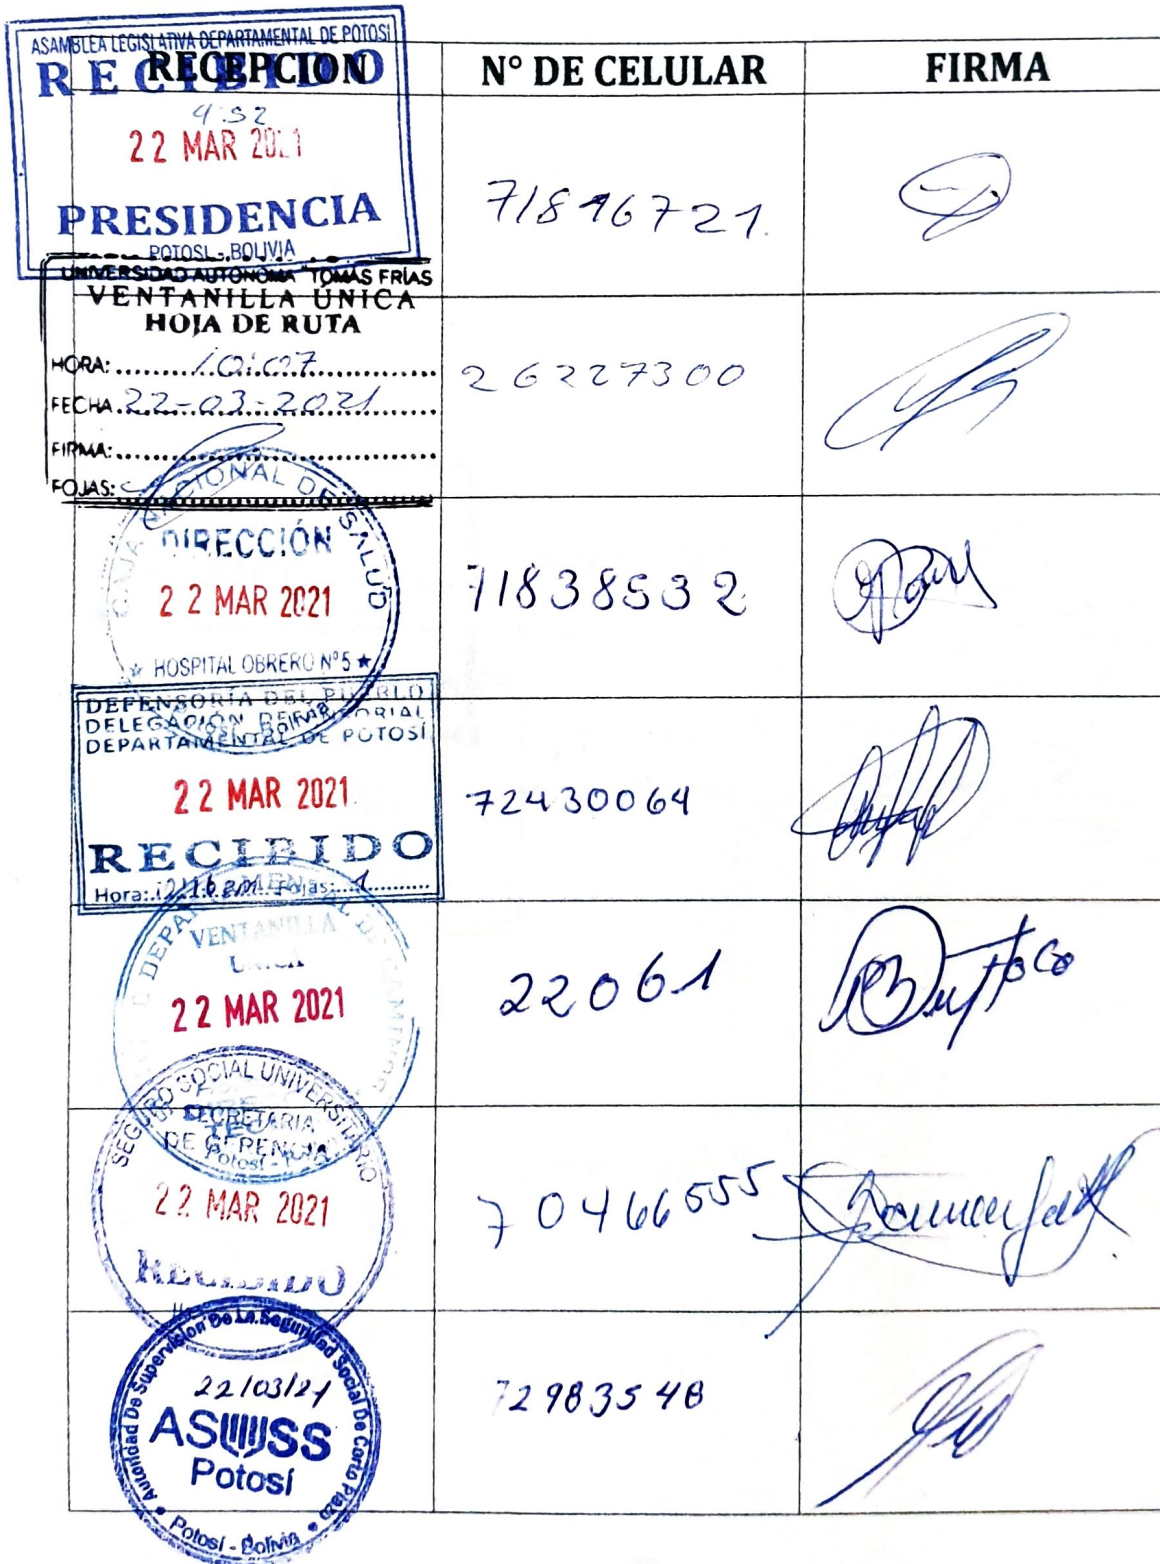 ASAMBLEA LEGISLATIVA DEPARTAMENTAL DE POTOSÍ
RECIBIDO
RECEPCION
N° DE CELULAR
FIRMA
22 MAR 2021
PRESIDENCIA
POTOSI - BOLIVIA
71816721
UNIVERSIDAD AUTONOMA "TOMAS FRIAS
VENTANILLA ÚNICA
HOJA DE RUTA
HORA: 10:07
FECHA 22-03-2021
FIRMA:
FOJAS:
26227300
CAJA NACIONAL DE SALUD
DIRECCIÓN
22 MAR 2021
★ HOSPITAL OBRERO Nº5 ★
71838532
DEFENSORÍA DEL PUEBLO
DELEGACIÓN DEFENSORIAL
DEPARTAMENTAL DE POTOSÍ
22 MAR 2021
RECIBIDO
Hora: Fojas: 1
72430064
DEPARTAMENTAL DE CAMINOS
VENTANILLA
UNICA
22 MAR 2021
22061
SEGURO SOCIAL UNIVERSITARIO
SECRETARIA
DE GERENCIA
22 MAR 2021
RECIBIDO
70466555
Autoridad De Supervision De La Seguridad Social De Corto Plazo
22/03/21
ASUSS
Potosí
Potosi - Bolivia
72983548